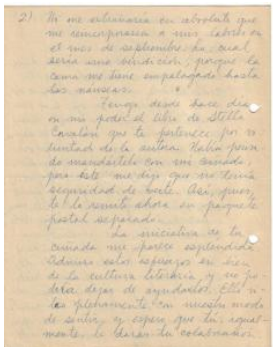 2) No me extrañaría en absoluto que
me reincorporara a mis labores en
el mes de septiembre. Lo cual
sería una bendición, porque la
cama me tiene empalagado hasta
las náuseas.
Tengo desde hace días
en mi poder el libro de Stella
Corvalán que te pertenece por vo
luntad de la autora. Había pensa
do mandártelo con mi cuñado,
pero éste me dijo que no tenía
seguridad de verte. Así, pues,
te lo remito ahora en paquete
postal separado.
La iniciativa de tu
cuñada me parece espléndida.
Admiro estos esfuerzos en bien
de la cultura literaria, y no po
dría dejar de ayudarlos. Ella
plenamente con nuestro modo
de sentir, y espero que tú, igual-
mente, le darás tu colaboración.